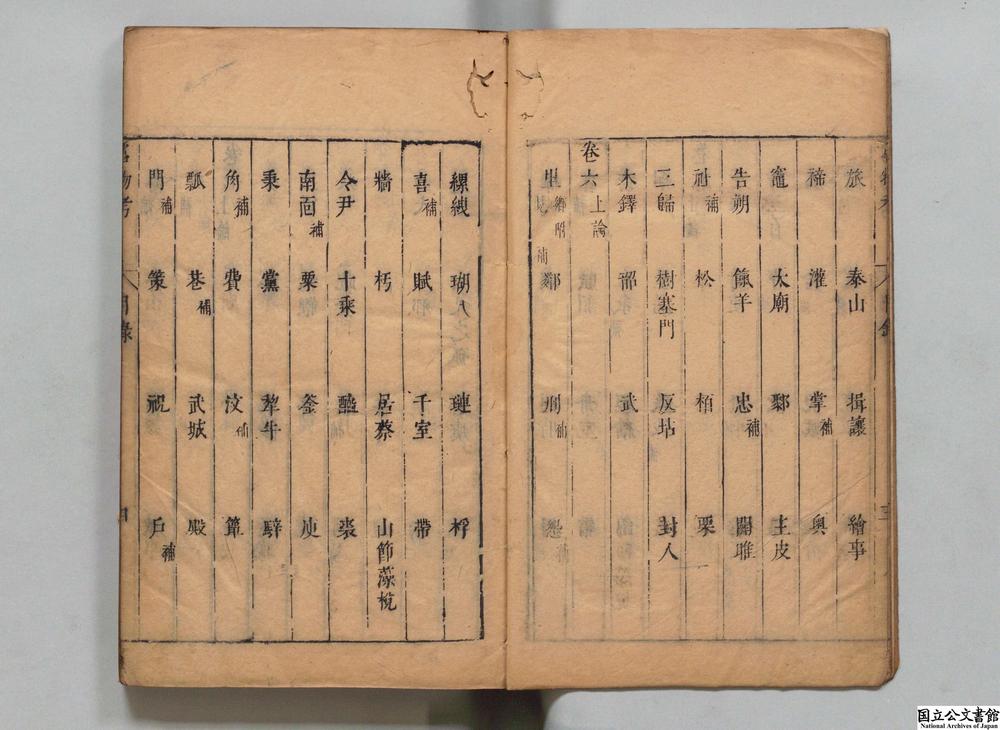 旅 泰山 揖讓 繪事
禘 灌 掌補 奧
竈 太廟 鄹 主皮
告朔 餼羊 忠補 關雎
社補 松 柏 栗
三歸 樹塞門 反坫 封人
木鐸 韶 武
卷六上論
里 鄰 補
縲絏 瑚 璉 桴
喜補 賦 千室 帶
牆 朽 居蔡 山節藻梲
令尹 十乘 醯 裘
南面補 粟 釜 庾
秉 黨 犂牛 騂
角補 費 汶補 簞
瓢 巷補 武城 殿
門補 策 祝 戶補
物考 目錄
国立公文書館
National Archives of Japan